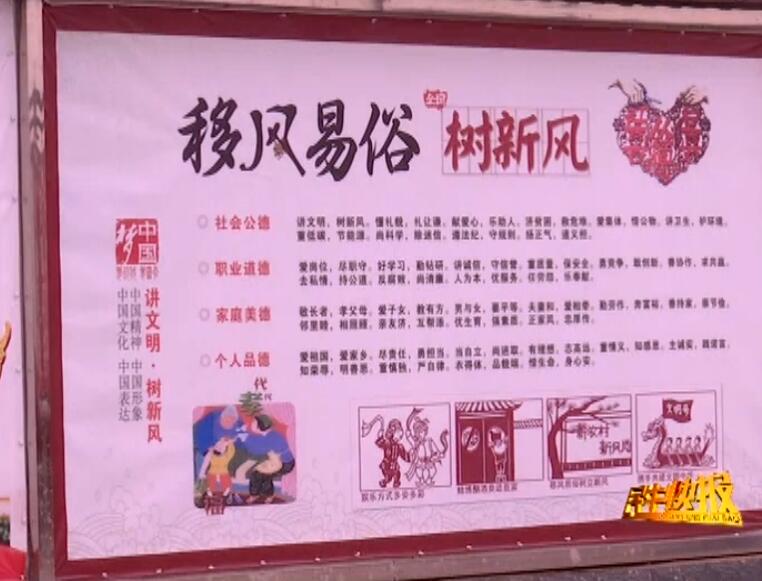 移风易俗 树新风
中国梦
讲文明·树新风
中国精神 中国形象
中国文化 中国表达
社会公德
讲文明，树新风。懂礼貌，礼让谦。献爱心，乐助人。济贫困，救危难。爱集体，惜公物。讲卫生，护环境。
重低碳，节能源。尚科学，除迷信。遵法纪，守规则。扬正气，道义担。
职业道德
爱岗位，尽职守。好学习，勤钻研。讲诚信，守信誉。重质量，保安全。勇竞争，敢创新。善协作，求共赢。
去私情，持公道。反腐败，尚清廉。人为本，优服务。任劳怨，乐奉献。
家庭美德
敬长者，孝父母。爱子女，教有方。男与女，要平等。夫妻和，爱相牵。勤劳作，奔富裕。善持家，崇节俭。
邻里睦，相照顾。亲友济，互帮添。优生育，强素质。正家风，忠厚传。
个人品德
爱祖国，爱家乡。尽责任，勇担当。当自立，尚进取。有理想，志高远。重情义，知感恩。主诚实，践诺言。
知荣辱，明善恶。重慎独，严自律。衣得体，品貌端。惜生命，身心安。
孝
代代
福
新农村
新风尚
文明号
娱乐方式多姿多彩
赌博酗酒莫进我家
移风易俗树立新风
快报